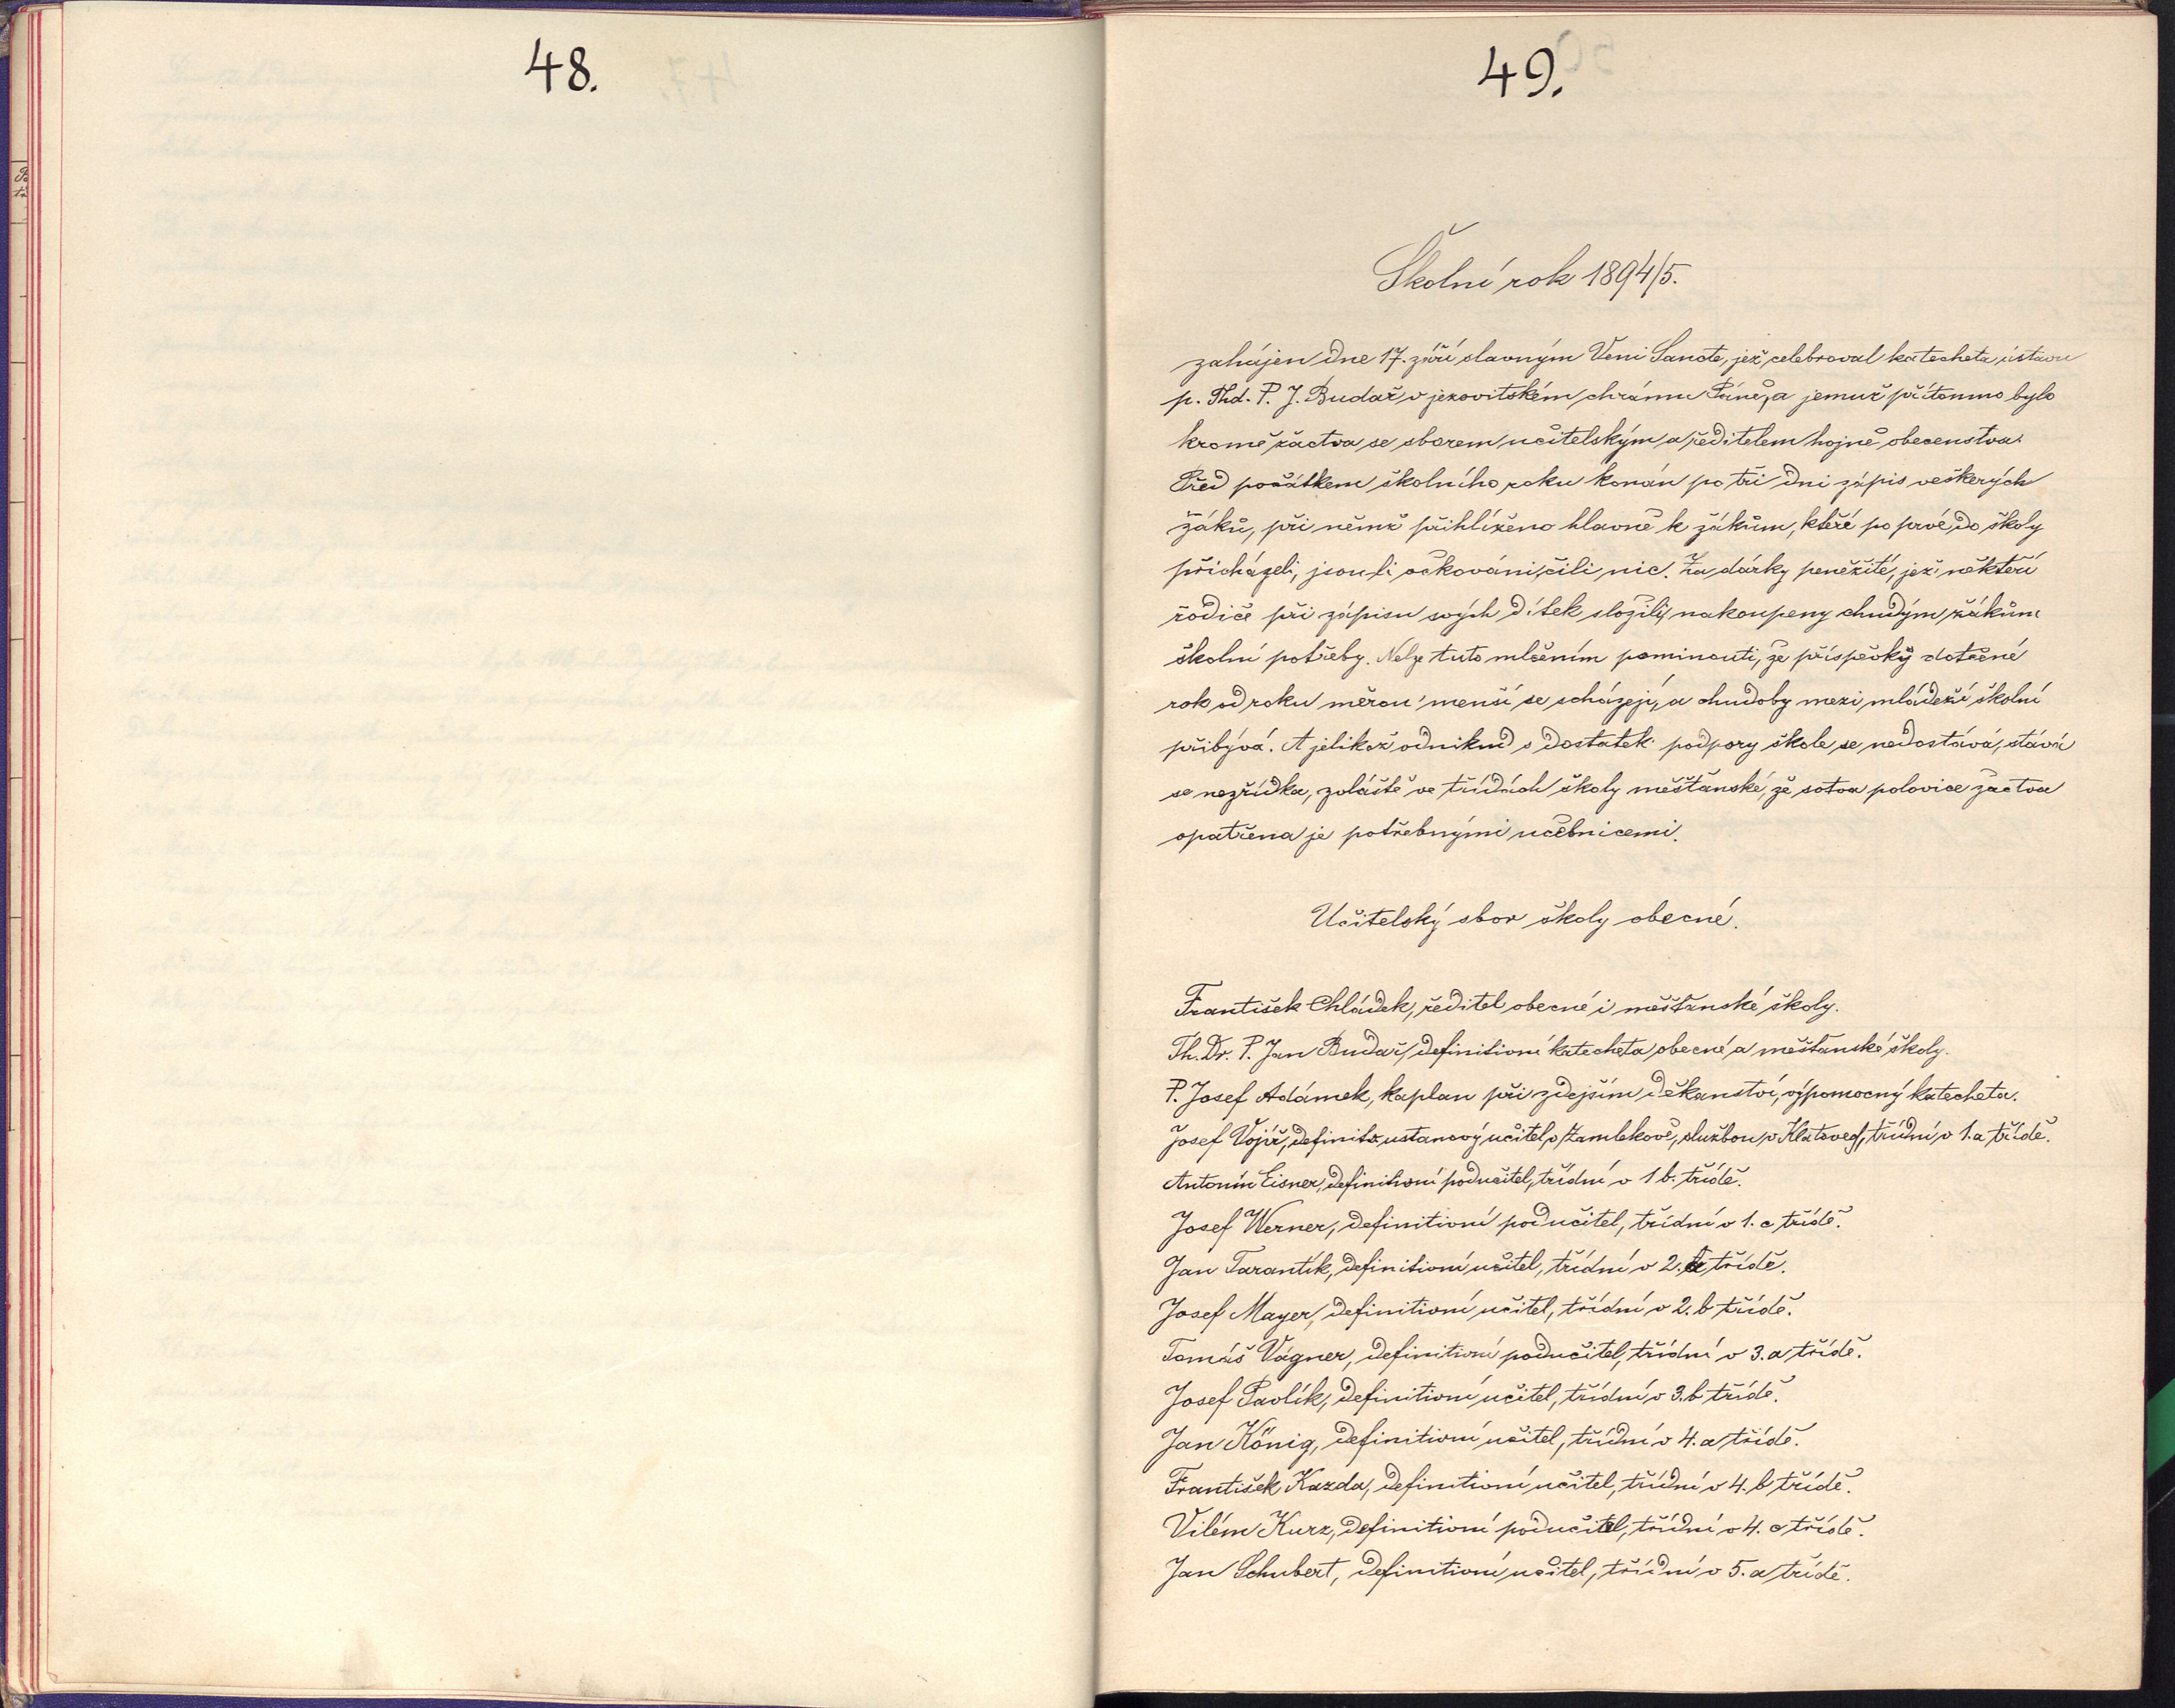 48.
49.
Školní rok 1894/5.
zahájen dne 17. září slavným Veni Sancte, jež celebroval katecheta ústavu
p. Thd. P. J. Budař v jezovitském chrámu Páně, a jemuž přítomno bylo
kromě žactva se sborem učitelským a ředitelem hojně obecenstva.
Před počátkem školního roku konán po tři dni zápis veškerých
žáků, při němž přihlíženo hlavně k žákům, kteří po prvé do školy
přicházeli, jsou li očkováni, čili nic. Za dárky peněžité, jež někteří
rodiče při zápisu svých dítek složili, nakoupeny chudým žákům
školní potřeby. Nelze tuto mlčením pominouti, že příspěvky dotčené
rok od roku měrou menší se scházejí, a chudoby mezi mládeží školní
přibývá. A jelikož odnikud s dostatek podpory škole se nedostává, stává
se nezřídka, zvláště ve třídách školy měšťanské, že sotva polovice žactva
opatřena je potřebnými učebnicemi.
Učitelský sbor školy obecné.
František Chládek, ředitel obecné i měšťanské školy.
Th. Dr. P. Jan Budař, definitivní katecheta obecné a měšťanské školy.
P. Josef Adámek, kaplan při zdejším děkanství, výpomocný katecheta.
Josef Vojíř, definit. ustanový učitel v Zamlekově, službou v Klatovech, třídní v 1. a třídě.
Antonín Eisner, definitivní podučitel, třídní v 1 b. třídě.
Josef Werner, definitivní podučitel, třídní v 1. c třídě.
Jan Tarantík, definitivní učitel, třídní v 2. a třídě.
Josef Mayer, definitivní učitel, třídní v 2. b třídě.
Tomáš Vágner, definitivní podučitel, třídní v 3. a třídě.
Josef Pavlík, definitivní učitel, třídní v 3. b třídě.
Jan König, definitivní učitel, třídní v 4. a třídě.
František Kazda, definitivní učitel, třídní v 4. b třídě.
Vilém Kurz, definitivní podučitel, třídní v 4. c třídě.
Jan Schubert, definitivní učitel, třídní v 5. a třídě.